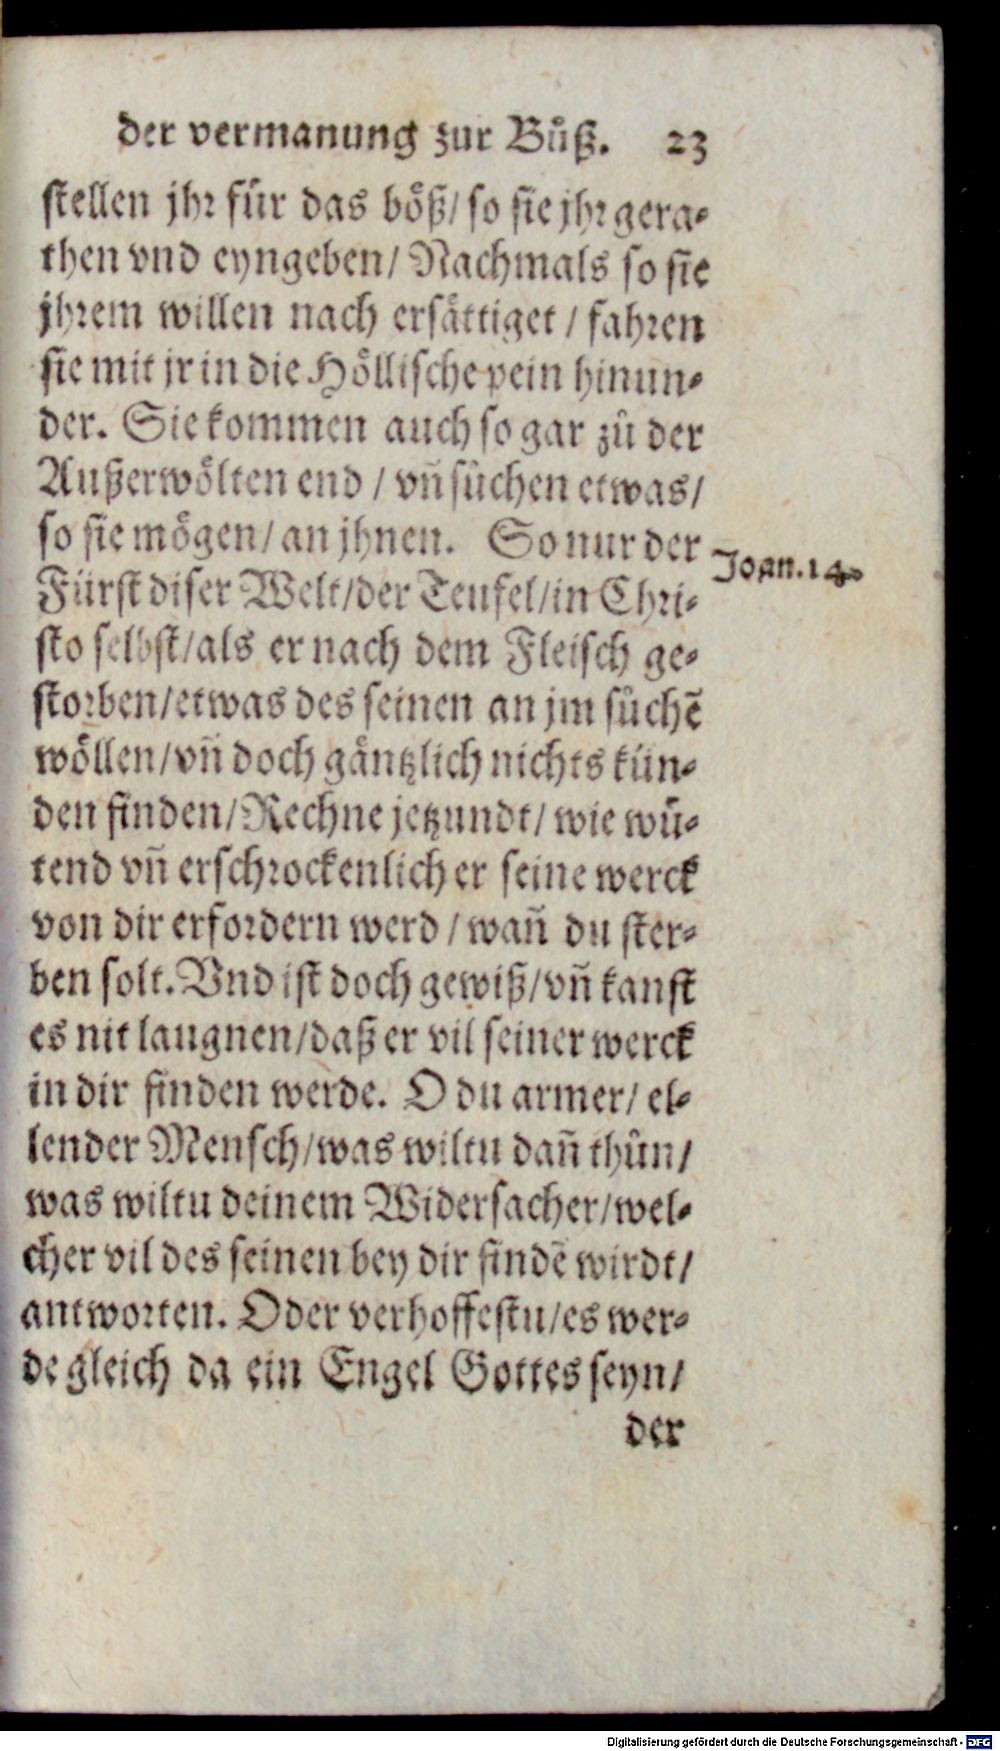 der vermanung zur Bůß. 23
stellen jhr für das böß/ so sie jhr gera-
then vnd eyngeben/ Nachmals so sie
jhrem willen nach ersättiget / fahren
sie mit jr in die Höllische pein hinun-
der. Sie kommen auch so gar zů der
Außerwölten end / vñ sůchen etwas/
so sie mögen/ an jhnen. So nur der
Joan. 14.
Fürst diser Welt/der Teufel/in Chri-
sto selbst/als er nach dem Fleisch ge-
storben/etwas des seinen an jm sůchẽ
wöllen/vñ doch gäntzlich nichts kün-
den finden/Rechne jetzundt/ wie wü-
tend vñ erschrockenlich er seine werck
von dir erfordern werd / wañ du ster-
ben solt. Vnd ist doch gewiß/vñ kanst
es nit laugnen/daß er vil seiner werck
in dir finden werde. O du armer/ el-
lender Mensch/was wiltu dañ thůn/
was wiltu deinem Widersacher/wel-
cher vil des seinen bey dir findẽ wirdt/
antworten. Oder verhoffestu/es wer-
de gleich da ein Engel Gottes seyn/
der
Digitalisierung gefördert durch die Deutsche Forschungsgemeinschaft - DFG